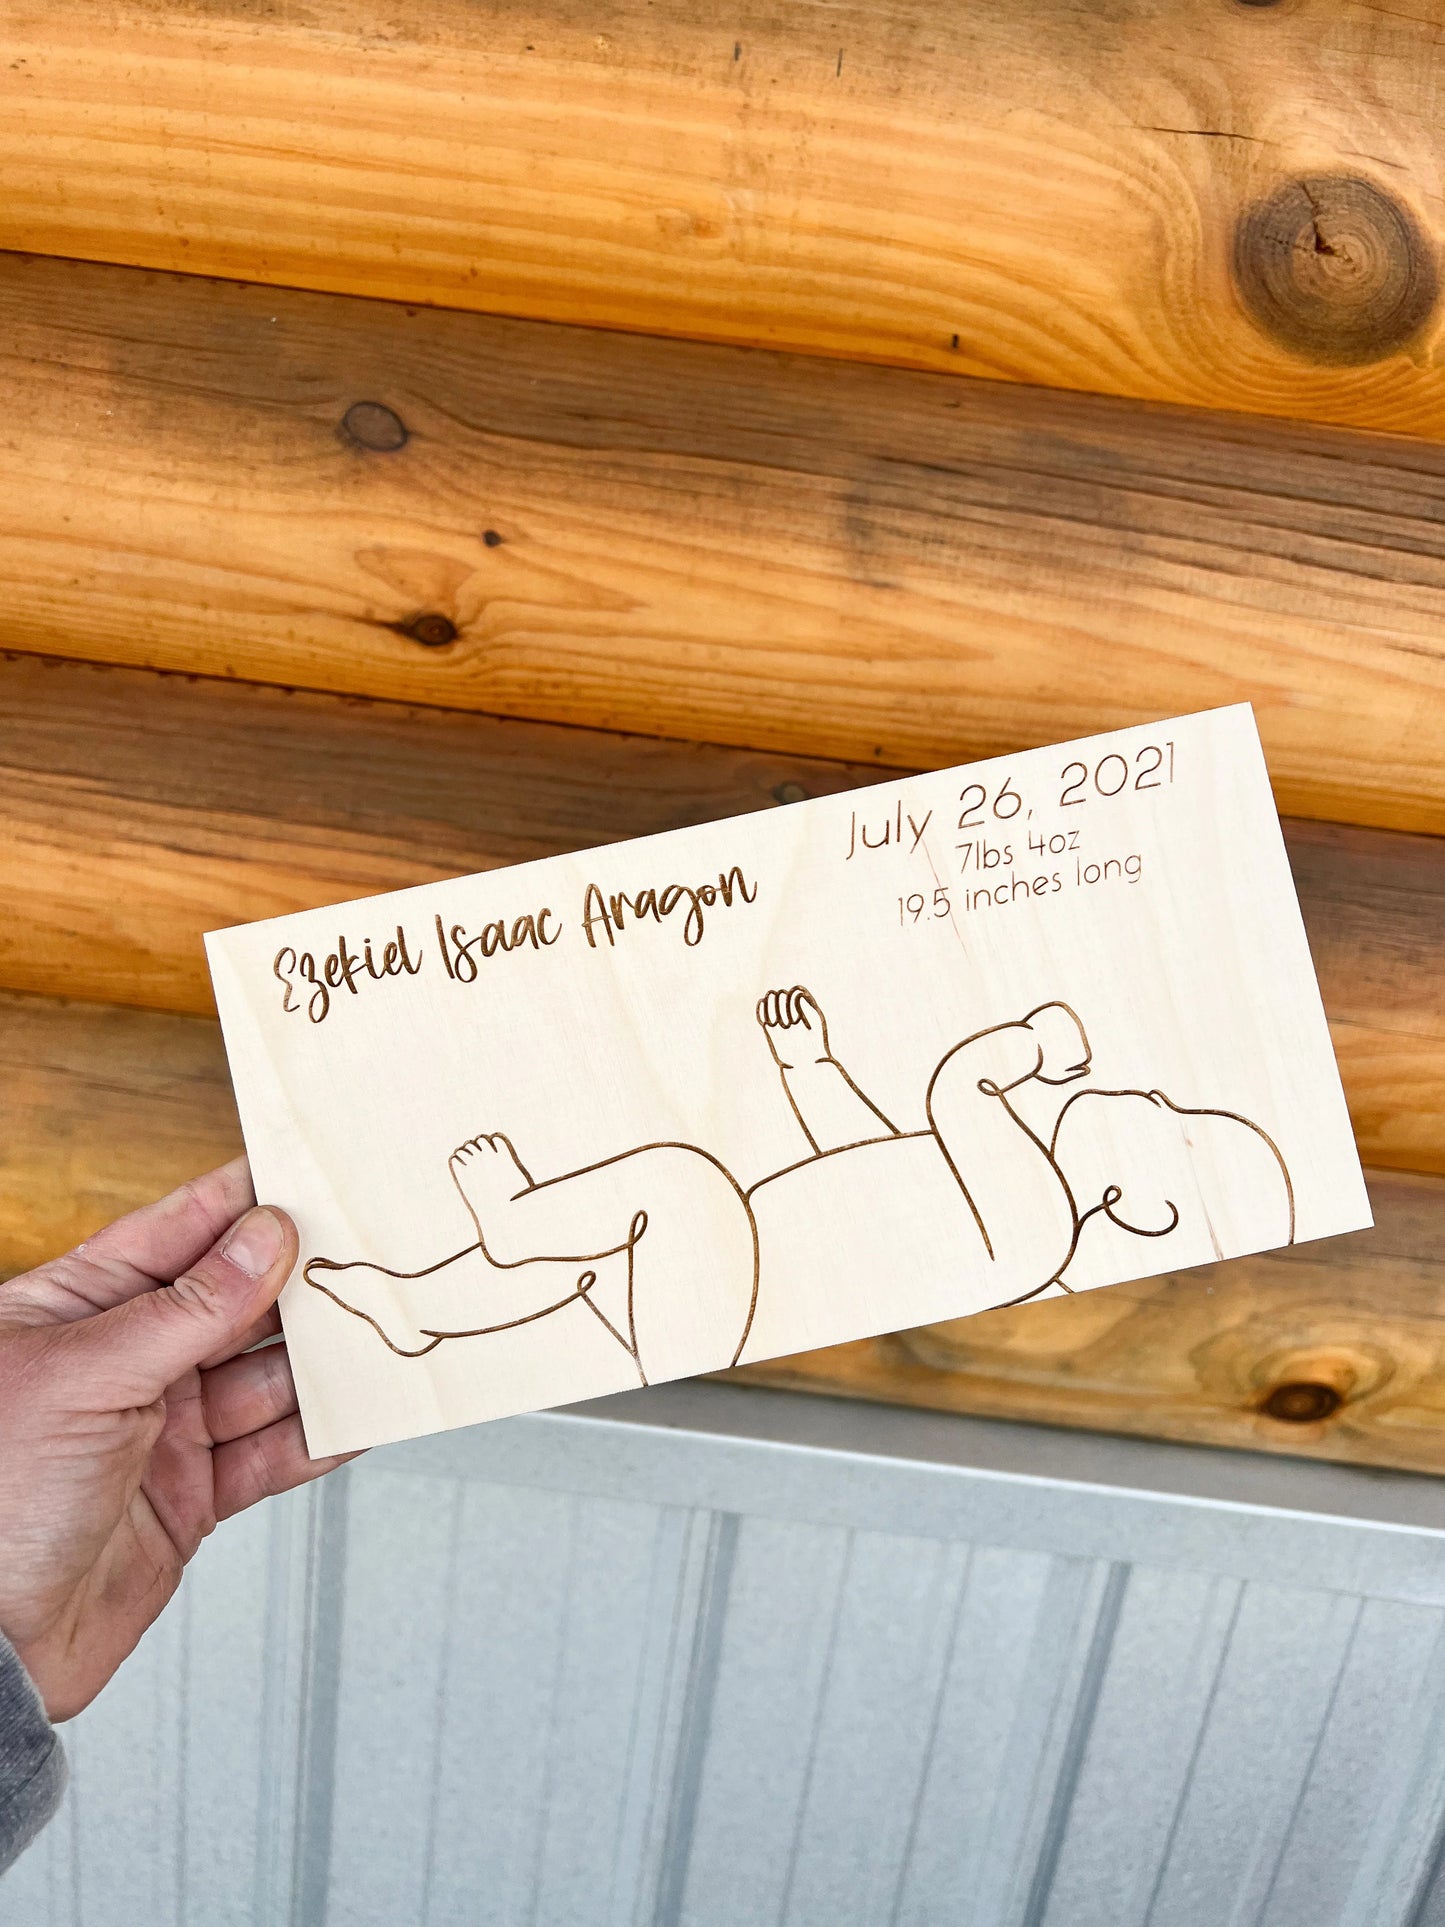 Ezekiel Isaac Aragon
July 26, 2021
7lbs 4oz
19.5 inches long